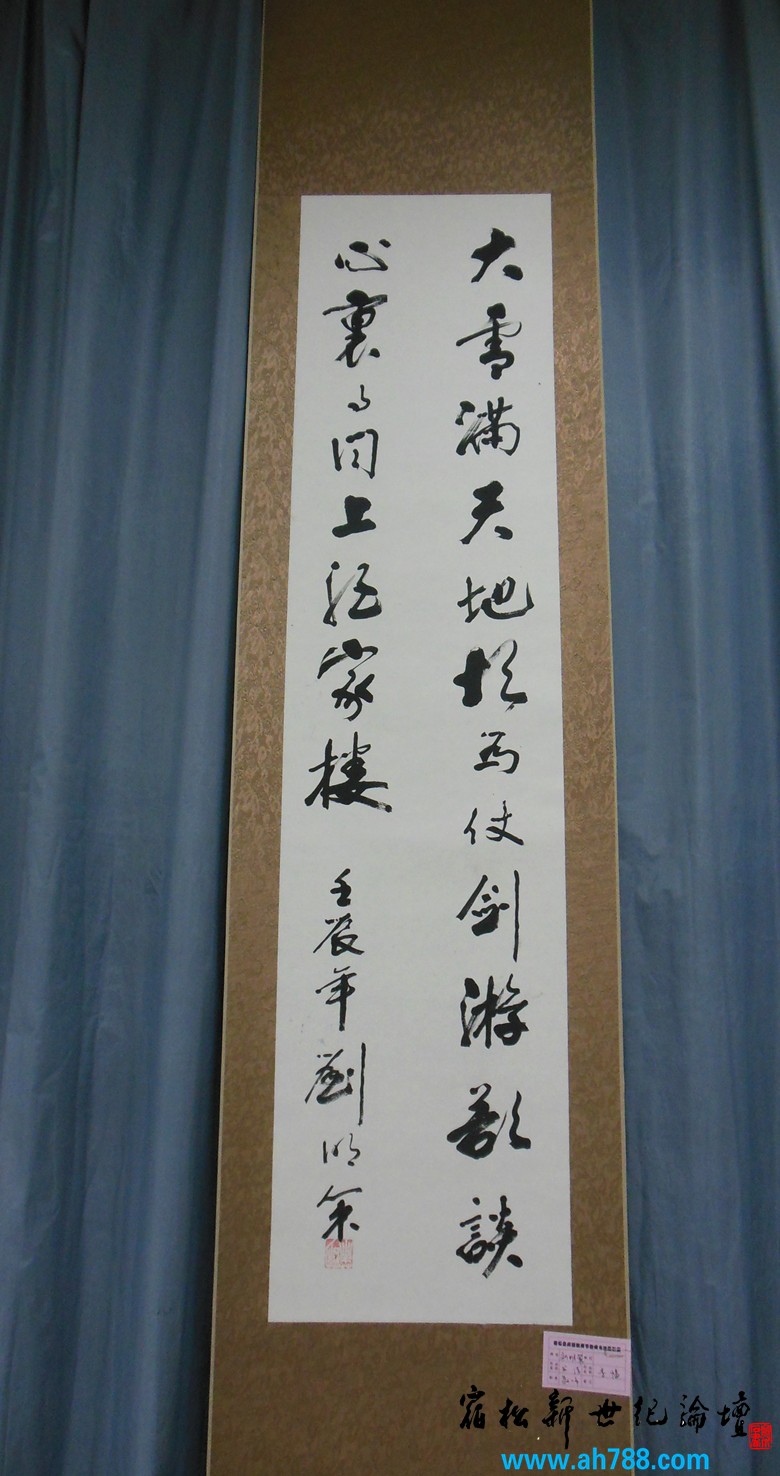 大雪满天地胡为仗剑游欲談
心裏事同上酒家樓
壬辰年劉明策
宿松新世纪論壇
www.ah788.com